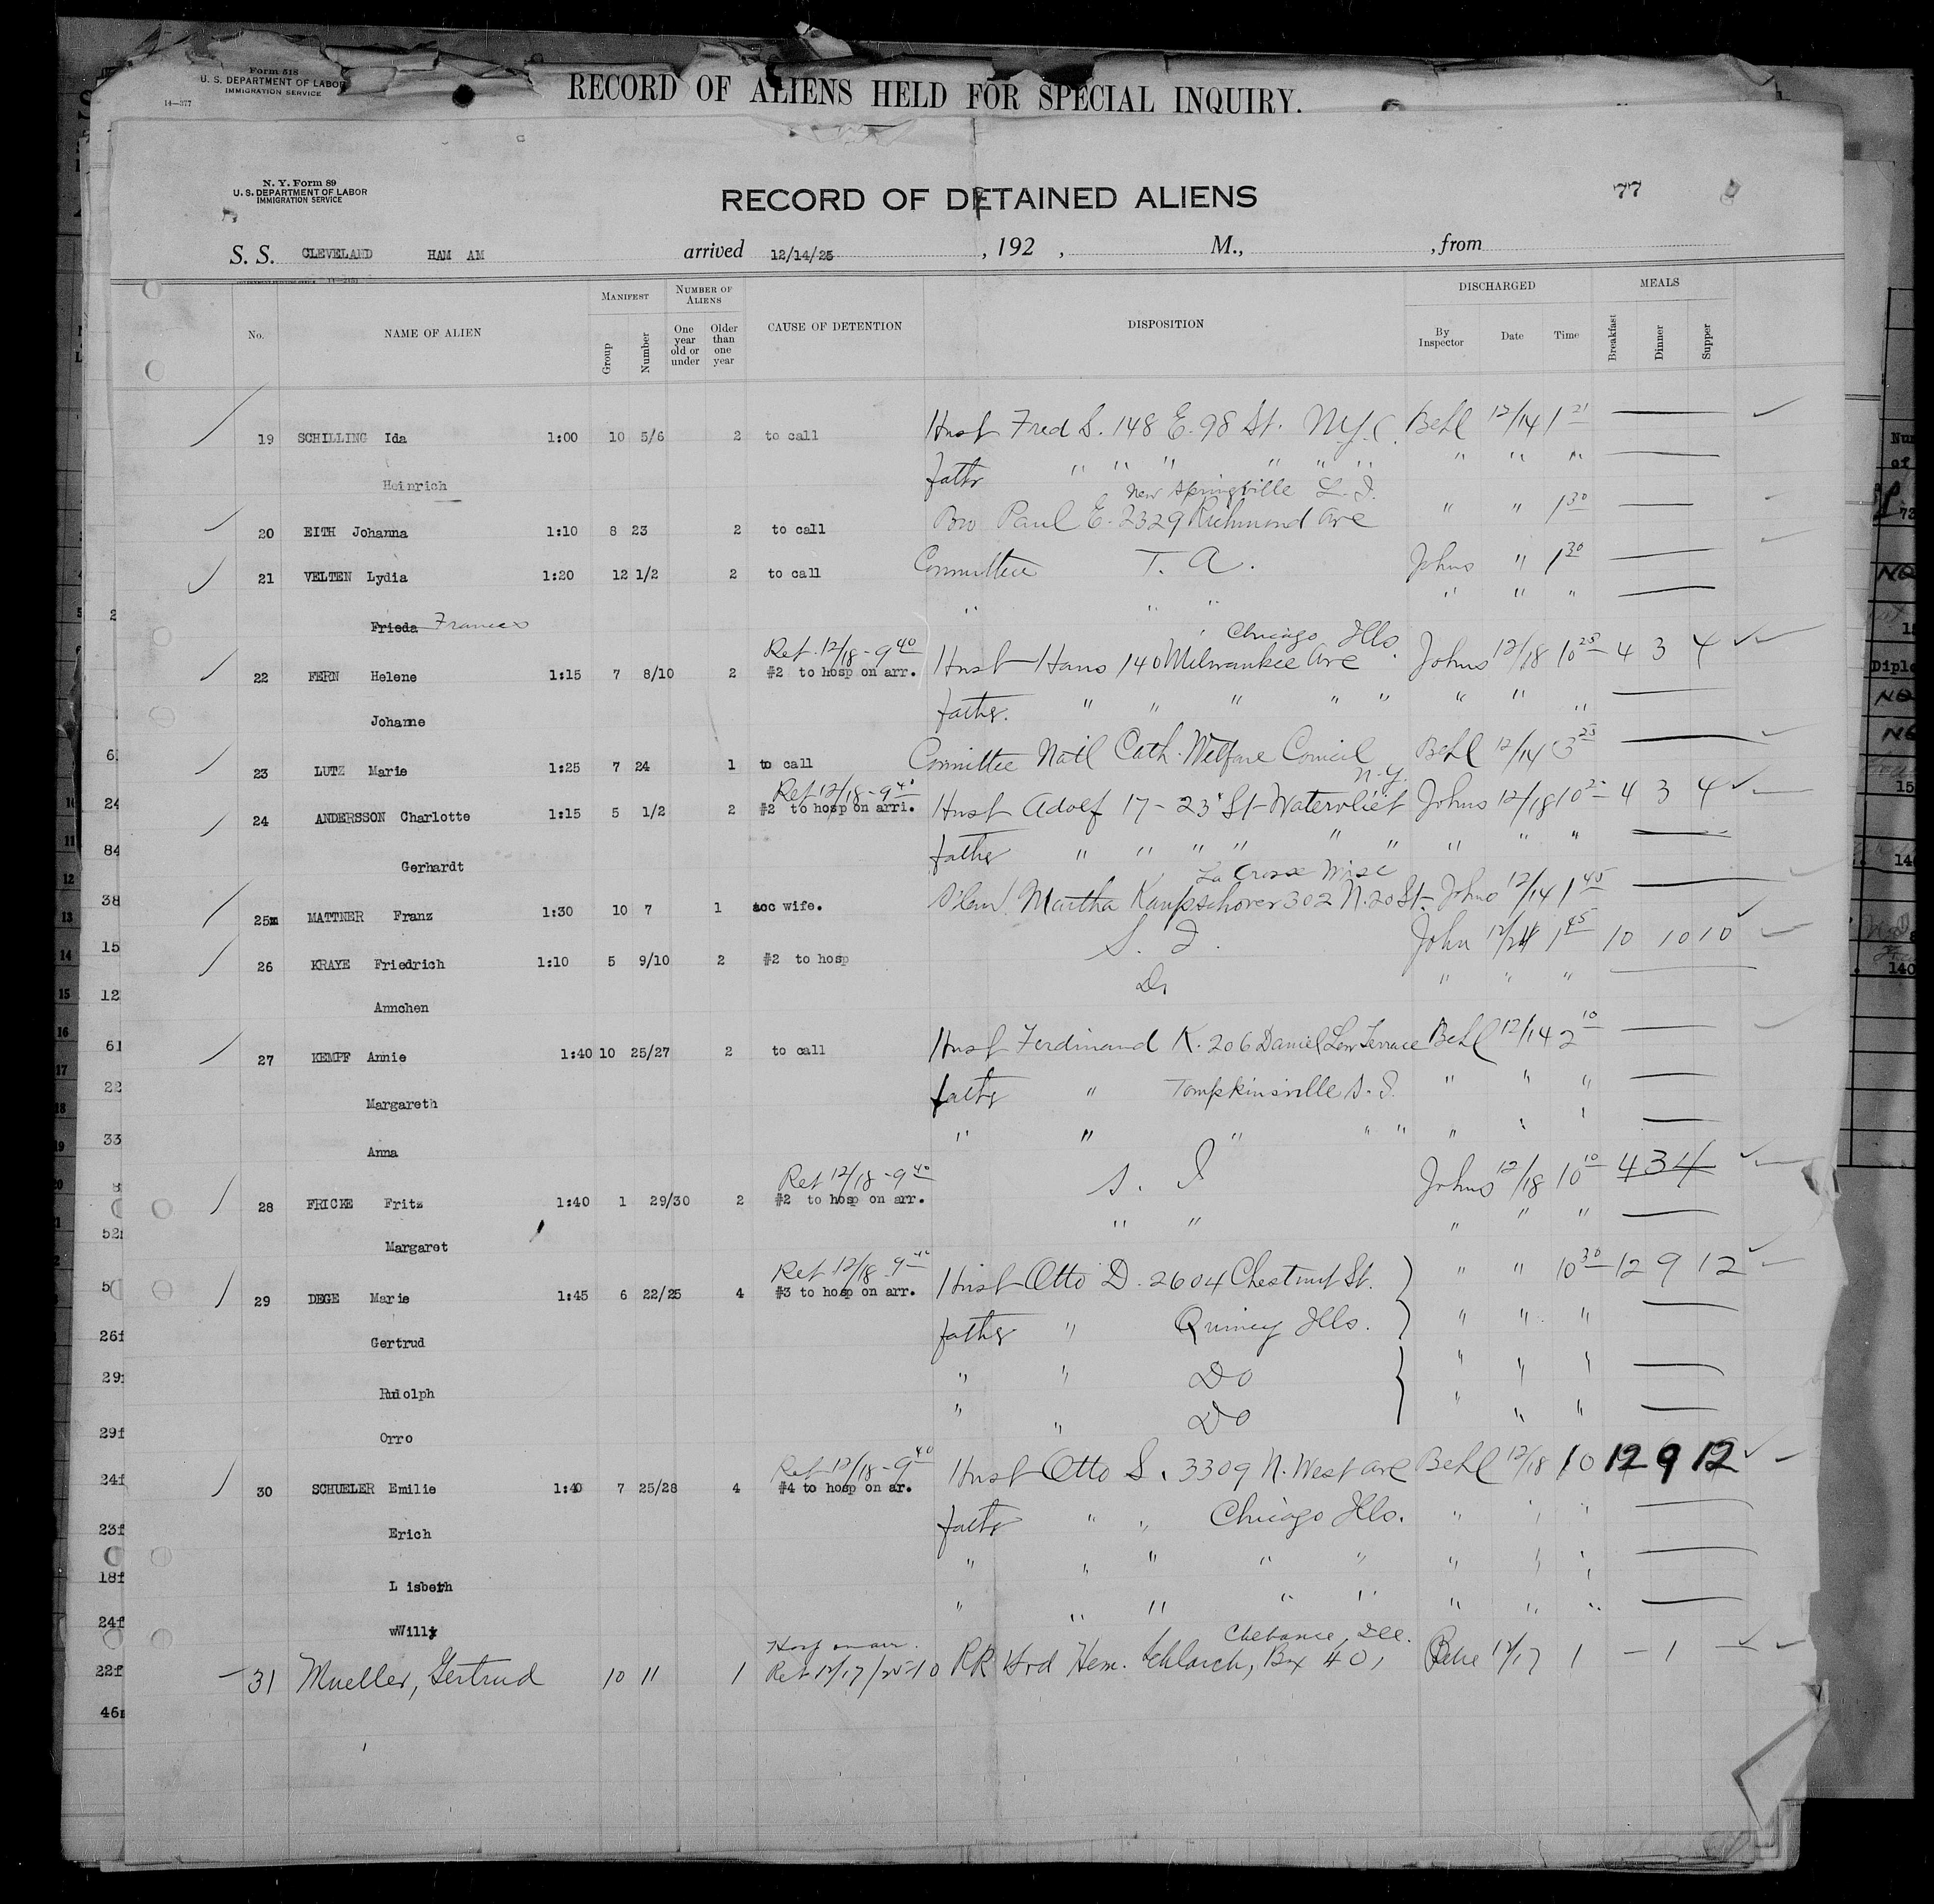 Form 518
U. S. DEPARTMENT OF LABOR
IMMIGRATION SERVICE
14—377
RECORD OF ALIENS HELD FOR SPECIAL INQUIRY.
N. Y. Form 89
U. S. DEPARTMENT OF LABOR
IMMIGRATION SERVICE
RECORD OF DETAINED ALIENS
77
S. S. CLEVELAND HAM AM arrived 12/14/25 , 192 , M., , from
No. NAME OF ALIEN MANIFEST Group Number NUMBER OF ALIENS One year old or under Older than one year CAUSE OF DETENTION DISPOSITION DISCHARGED By Inspector Date Time MEALS Breakfast Dinner Supper
19 SCHILLING Ida 1:00 10 5/6 2 to call Husb Fred S. 148 E. 98 St. N.Y.C. Behl 12/14 1 21
Heinrich fathr " " " " " " " " "
New Springville L. I.
20 EITH Johanna 1:10 8 23 2 to call Bro Paul E. 2329 Richmond Ave " " 1 30
21 VELTEN Lydia 1:20 12 1/2 2 to call Committee T. A. Johns " 1 30
Frieda Frances " " " " " "
Ret. 12/18 - 9 40 Chicago Ills.
22 FERN Helene 1:15 7 8/10 2 #2 to hosp on arr. Husb Hans 140 Milwaukee Ave Johns 12/18 10 25 4 3 4
Johanne father. " " " " " " " "
23 LUTZ Marie 1:25 7 24 1 to call Committee Natl Cath. Welfare Council Behl 12/14 3 25
Ret 12/18 - 9 40 N.Y.
24 ANDERSSON Charlotte 1:15 5 1/2 2 #2 to hosp on arri. Husb Adolf 17 - 23 St Watervliet Johns 12/18 10 2- 4 3 4
Gerhardt father " " " " " " " " "
La Crosse Wisc
25m MATTNER Franz 1:30 10 7 1 acc wife. Martha 302 N. 20 St. Johns 12/14 1 45
26 KRAYE Friedrich 1:10 5 9/10 2 #2 to hosp S. I. John 12/24 1 45 10 10 10
Annchen Do " " "
27 KEMPF Annie 1:40 10 25/27 2 to call Husb Ferdinand K. 206 Daniel Low Terrace Behl 12/14 2 10
Margareth father " Tompkinsville S. I. " " "
Anna " " " " " " " "
Ret 12/18 - 9 40
28 FRICKE Fritz 1:40 1 29/30 2 #2 to hosp on arr. S. I Johns 12/18 10 10 4 3 4
Margaret " " " " "
Ret 12/18 - 9 40
29 DEGE Marie 1:45 6 22/25 4 #3 to hosp on arr. Husb Otto D. 2604 Chestnut St. " " 10 30 12 9 12
Gertrud father " Quincy Ills. " " "
Rudolph " " Do " " "
Orro " " Do " " "
Ret 12/18 - 9 40
30 SCHUELER Emilie 1:40 7 25/28 4 #4 to hosp on ar. Husb Otto S. 3309 N. West Ave Behl 12/18 10 12 9 12
Erich fathr " " Chicago Ills. " " "
L isbeth " " " " " " " "
wWilly " " " " " " " "
Hosp on arr. Chebanse, Ill.
31 Mueller, Gertrud 10 11 1 Ret 12/17/25-10 RR Hem. Schlarch, Box 40, 12/17 1 - 1 -